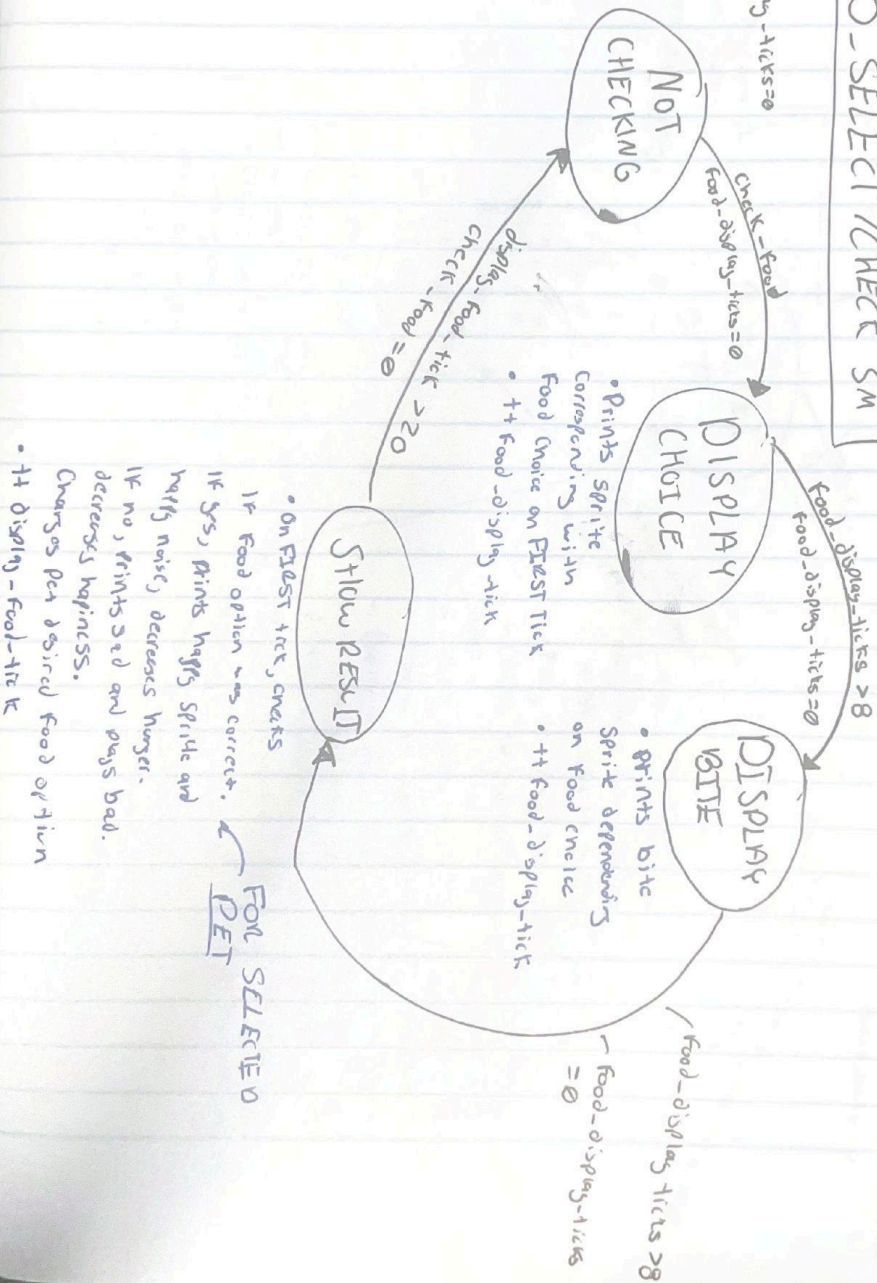 O_SELECT/CHECK SM
y-ticks=0
NOT
CHECKING
check-food
food_display_ticks=0
DISPLAY
CHOICE
• Prints sprite
corresponding with
food choice on FIRST Tick
• ++ food_display_tick
food_display_ticks >8
food_display_ticks=0
DISPLAY
BITE
• prints bite
sprite depending
on food choice
• ++ food_display_tick
food_display ticks >8
food_display_ticks
=0
display_food_tick >20
check_food =0
SHOW RESULT
• On FIRST tick, checks
if food option was correct.
If yes, prints happy sprite and
happy noise, decreases hunger.
If no, prints sad and plays bad.
decreases hapiness.
Changes pet desired food option
• ++ display-food-tick
FOR SELECTED
PET